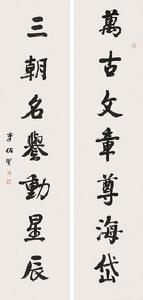 萬古文章尊海岱
三朝名譽動星辰
李佐賢